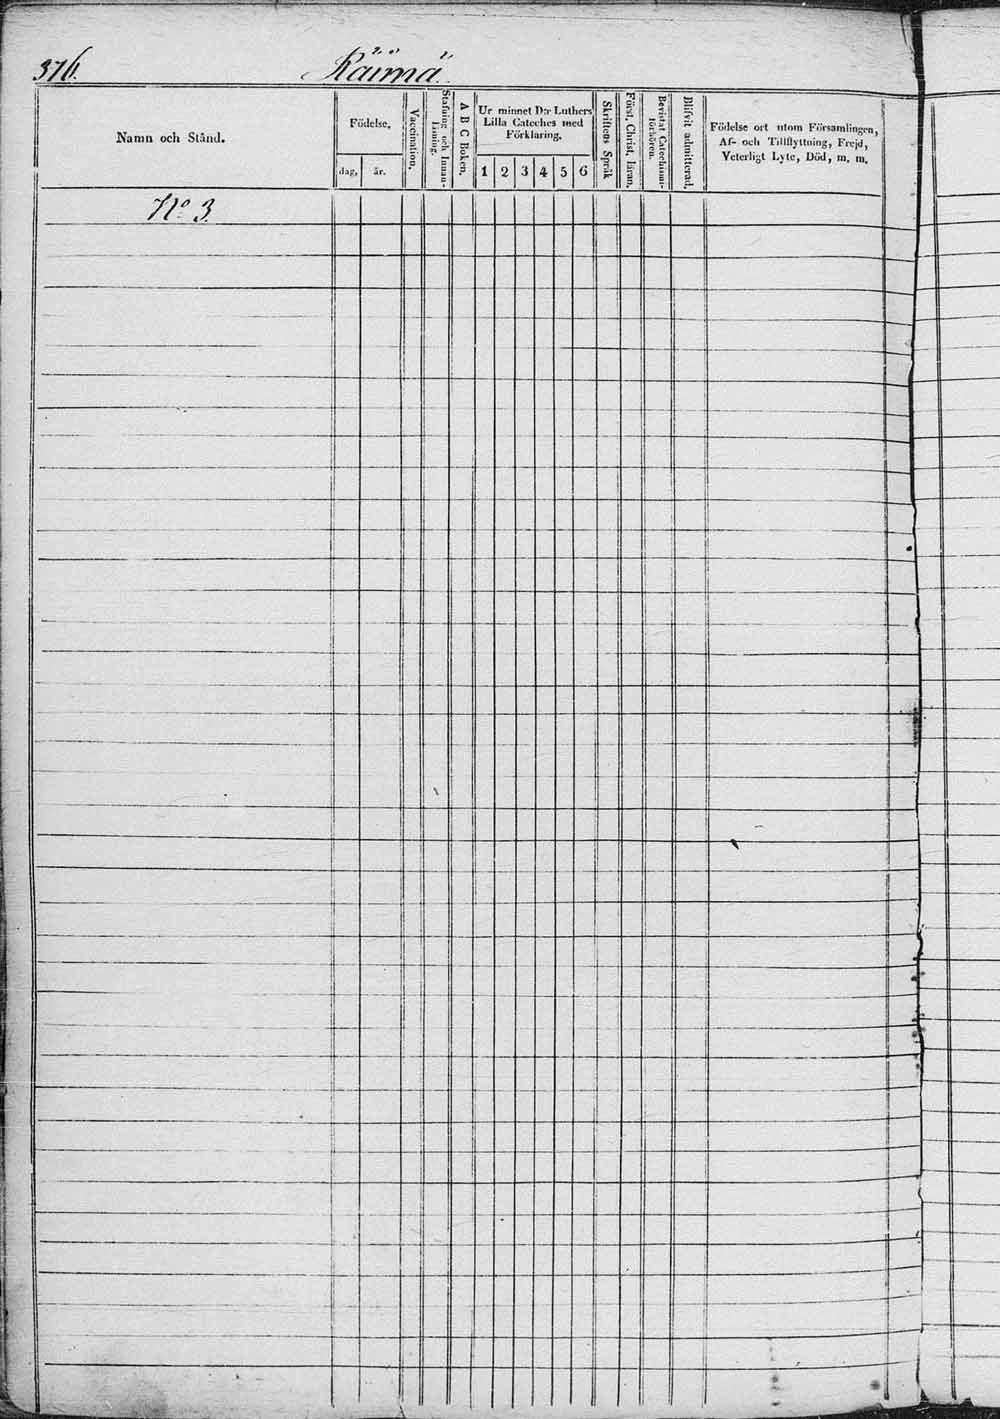 376. Räimä.
Namn och Stånd.
Födelse,
dag,
år.
Vaccination,
Stafning och Innan-
läsning.
A B C Boken,
Ur minnet D:r Luthers
Lilla Cateches med
Förklaring,
1 2 3 4 5 6
Skriftens Språk
Först. Christ. läran,
Bevistat Catechismi-
förhören.
Blifvit admitterad,
Födelse ort utom Församlingen,
Af- och Tillflyttning, Frejd,
Veterligt Lyte, Död, m. m.
No 3.